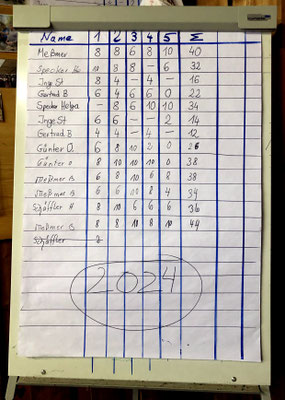 Name 1 2 3 4 5 Σ
Meßmer 8 8 6 8 10 40
Specker 10 8 8 – 6 32
Inge St 8 4 – 4 – 16
Gertrud B 6 4 6 6 0 22
Specker Helga – 8 6 10 10 34
Inge St 6 6 – – 2 14
Gertrud B 4 4 – 4 – 12
Günter O. 6 8 10 2 0 26
Günter O 8 10 10 10 0 38
Meßmer B 6 8 10 6 8 38
Meßmer B 6 6 10 8 4 34
Schäffler H 8 10 6 6 6 36
Meßmer B 8 8 10 8 10 44
Schäffler
2024